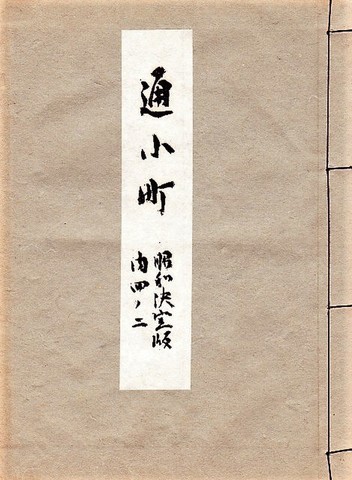 通小町
昭和決定版
内四ノ二